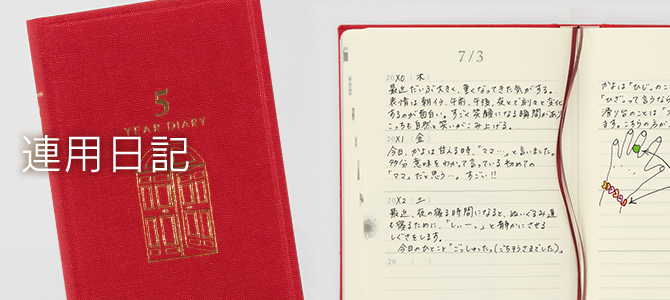 連用日記
5
YEAR DIARY
7/3
20X0 (木)
最近だいぶ大きく、重くなってきた気がする。
表情は朝イチ、午前、午後、夜とで刻々と変化
するのが面白い。すごく笑顔になる瞬間があり
こっちも自然と笑いがこみ上げる。
20X1 (金)
今日、かよは甘える時、「ママ…」と言いました。
多分 意味をわかって言っている 初めての
「ママ」だと思う…。すごい!!
20X2 (土)
最近、夜の寝る時間になると、ぬいぐるみ達
も寝るために、「しぃー。」と静かにさせる
しぐさをします。
今日のひとこと「ごっしゅった。(ごちそうさまでした)」
20 ( )
かよは「ひじ」のこ
「ひざ」って言うなら
滑り台のことは
ます。こちらの方が